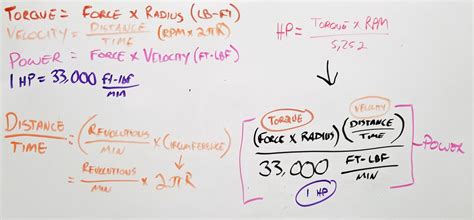 TORQUE = FORCE X RADIUS (LB-FT)
VELOCITY = DISTANCE / TIME (RPM X 2πR)
POWER = FORCE X VELOCITY (FT-LBF)
1 HP = 33,000 FT-LBF / MIN
HP = TORQUE X RPM / 5,252
DISTANCE / TIME = (REVOLUTIONS / MIN X CIRCUMFERENCE)
= REVOLUTIONS / MIN X 2πR
TORQUE VELOCITY
(FORCE X RADIUS) (DISTANCE / TIME)
33,000 FT-LBF / MIN
1 HP
POWER